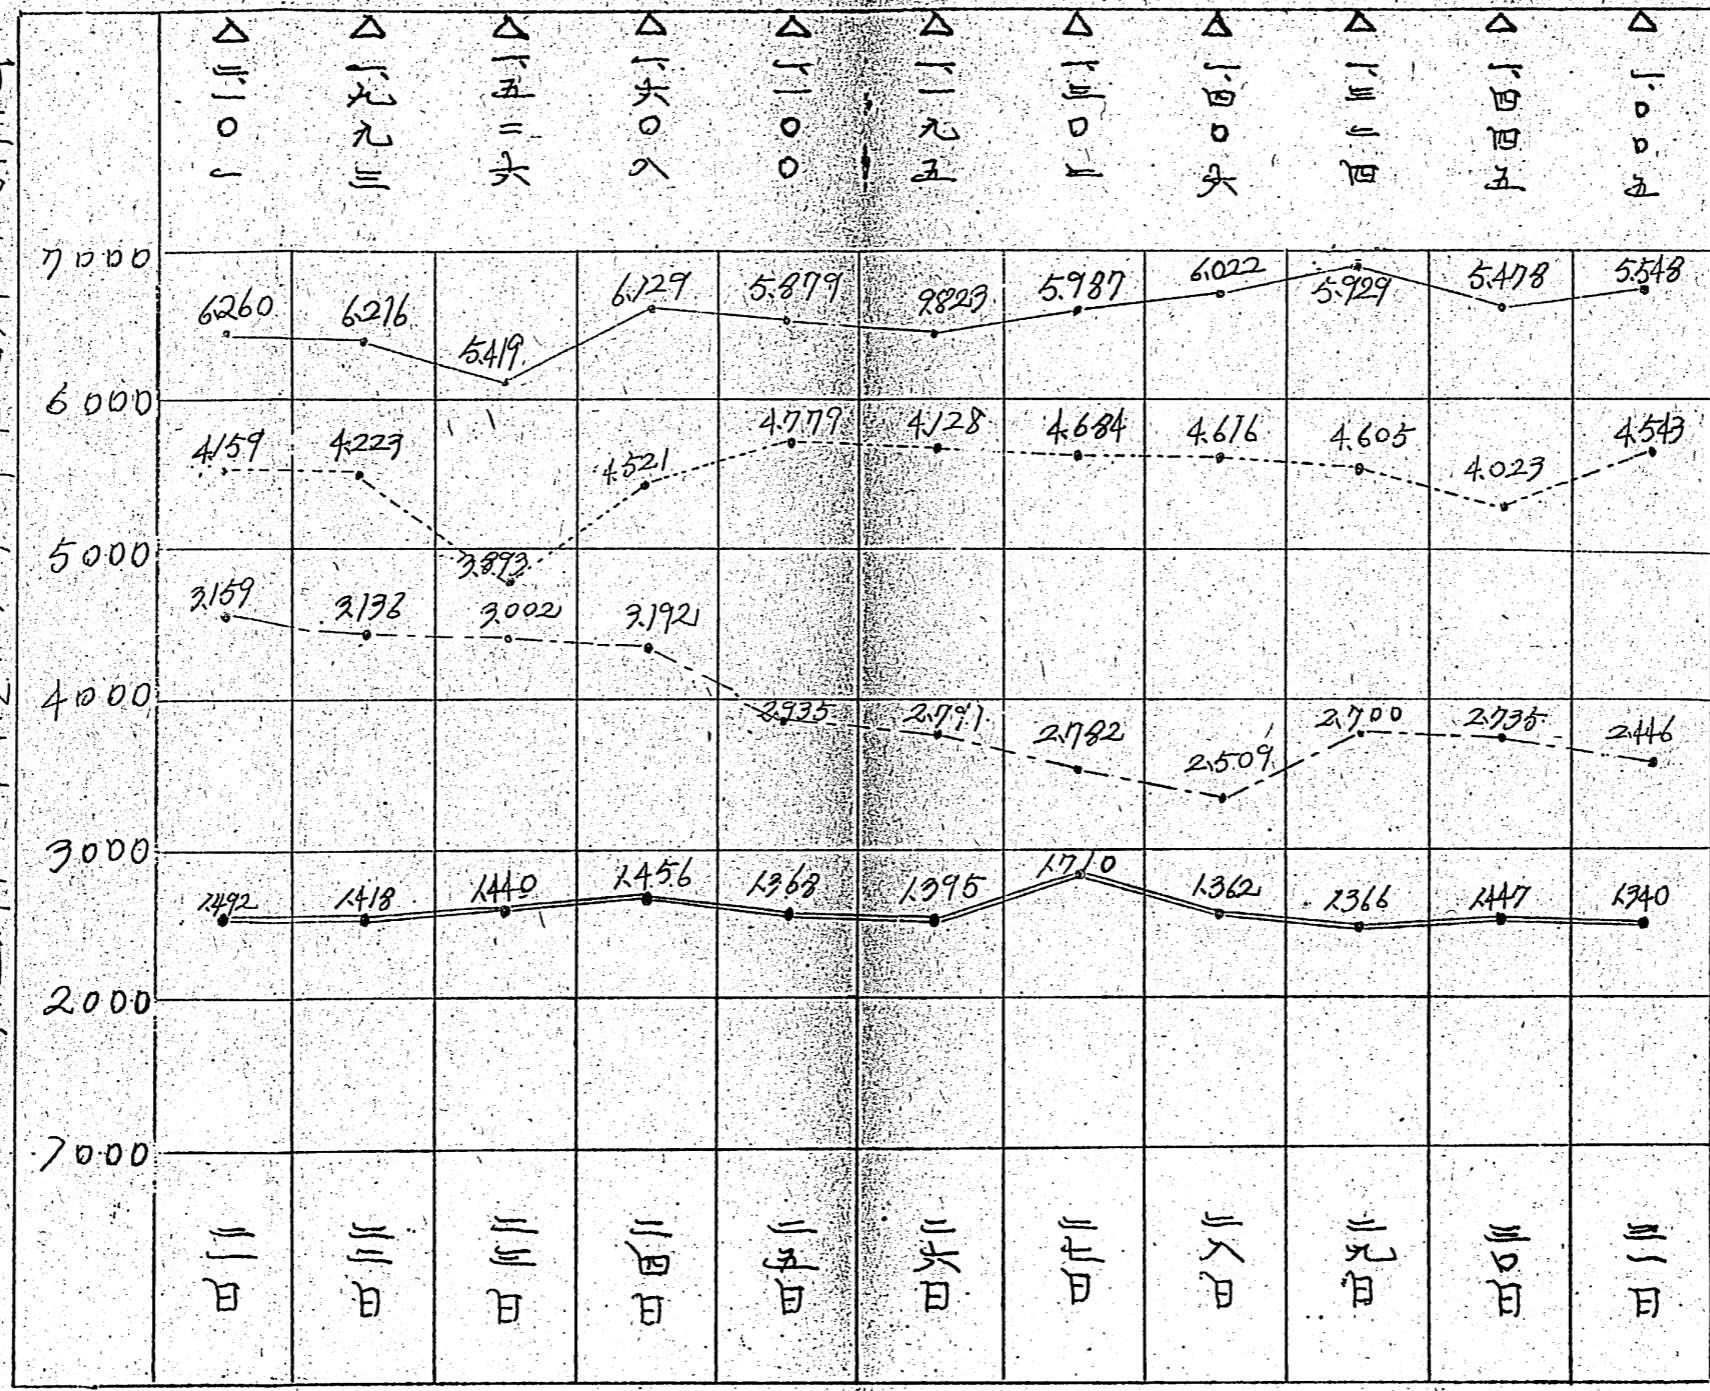 △二、一〇一
△一、九九三
△一、五二六
△一、六〇八
△一、一〇〇
△一、一九五
△一、三〇二
△一、四〇六
△一、三二四
△一、四四五
△一、〇〇五
7000
6.260 6.216 5.419 6.129 5.879 9823 5.987 6.022 5.929 5.478 5.548
6000
4.159 4.223 3.893 4.521 4.779 4.128 4.684 4.616 4.605 4.023 4.543
5000
3.159 3.136 3.002 3.192 2.935 2.791 2.782 2.509 2.700 2.735 2.446
4000
3000
1.492 1.418 1.440 1.456 1.368 1.395 1.710 1.362 1.366 1.447 1.340
2000
7000
二一日
二二日
二三日
二四日
二五日
二六日
二七日
二八日
二九日
三〇日
三一日